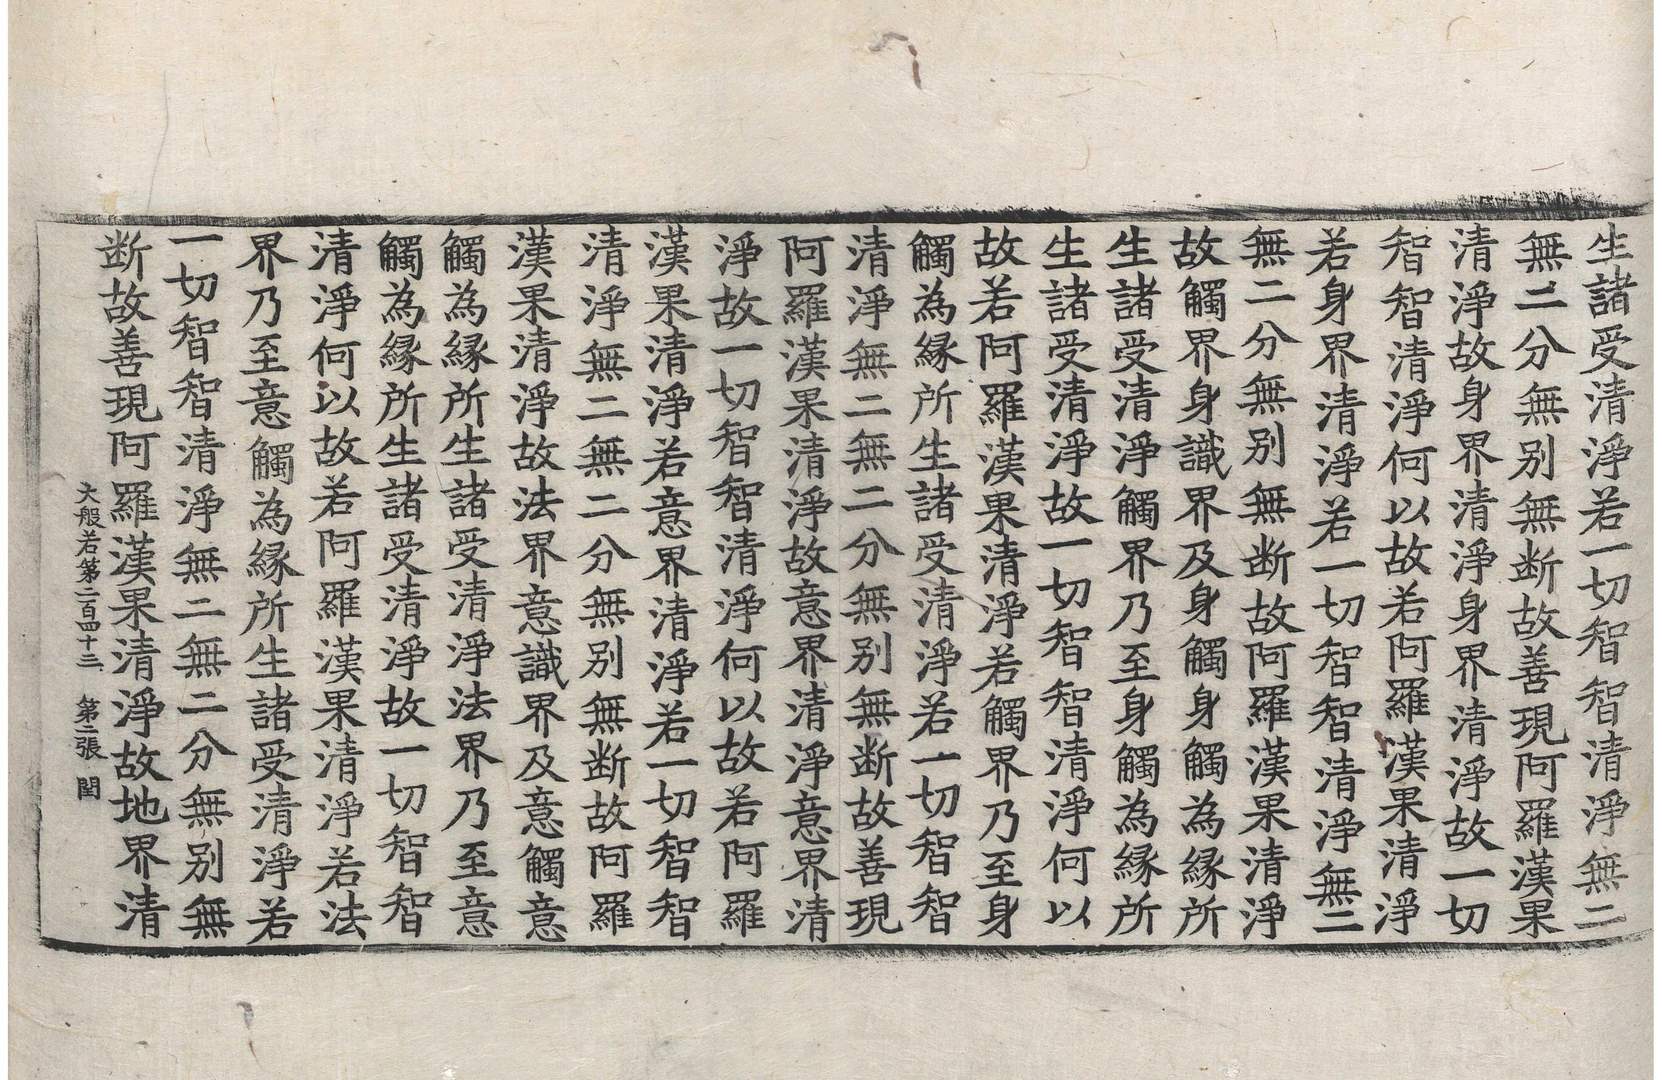 生諸受清淨若一切智智清淨無二
無二分無別無断故善現阿羅漢果
清淨故身界清淨身界清淨故一切
智智清淨何以故若阿羅漢果清淨
若身界清淨若一切智智清淨無二
無二分無別無断故阿羅漢果清淨
故觸界身識界及身觸身觸為緣所
生諸受清淨觸界乃至身觸為緣所
生諸受清淨故一切智智清淨何以
故若阿羅漢果清淨若觸界乃至身
觸為緣所生諸受清淨若一切智智
清淨無二無二分無別無断故善現
阿羅漢果清淨故意界清淨意界清
淨故一切智智清淨何以故若阿羅
漢果清淨若意界清淨若一切智智
清淨無二無二分無別無断故阿羅
漢果清淨故法界意識界及意觸意
觸為緣所生諸受清淨法界乃至意
觸為緣所生諸受清淨故一切智智
清淨何以故若阿羅漢果清淨若法
界乃至意觸為緣所生諸受清淨若
一切智智清淨無二無二分無別無
断故善現阿羅漢果清淨故地界清
大般若第二百四十三 第二張 閏